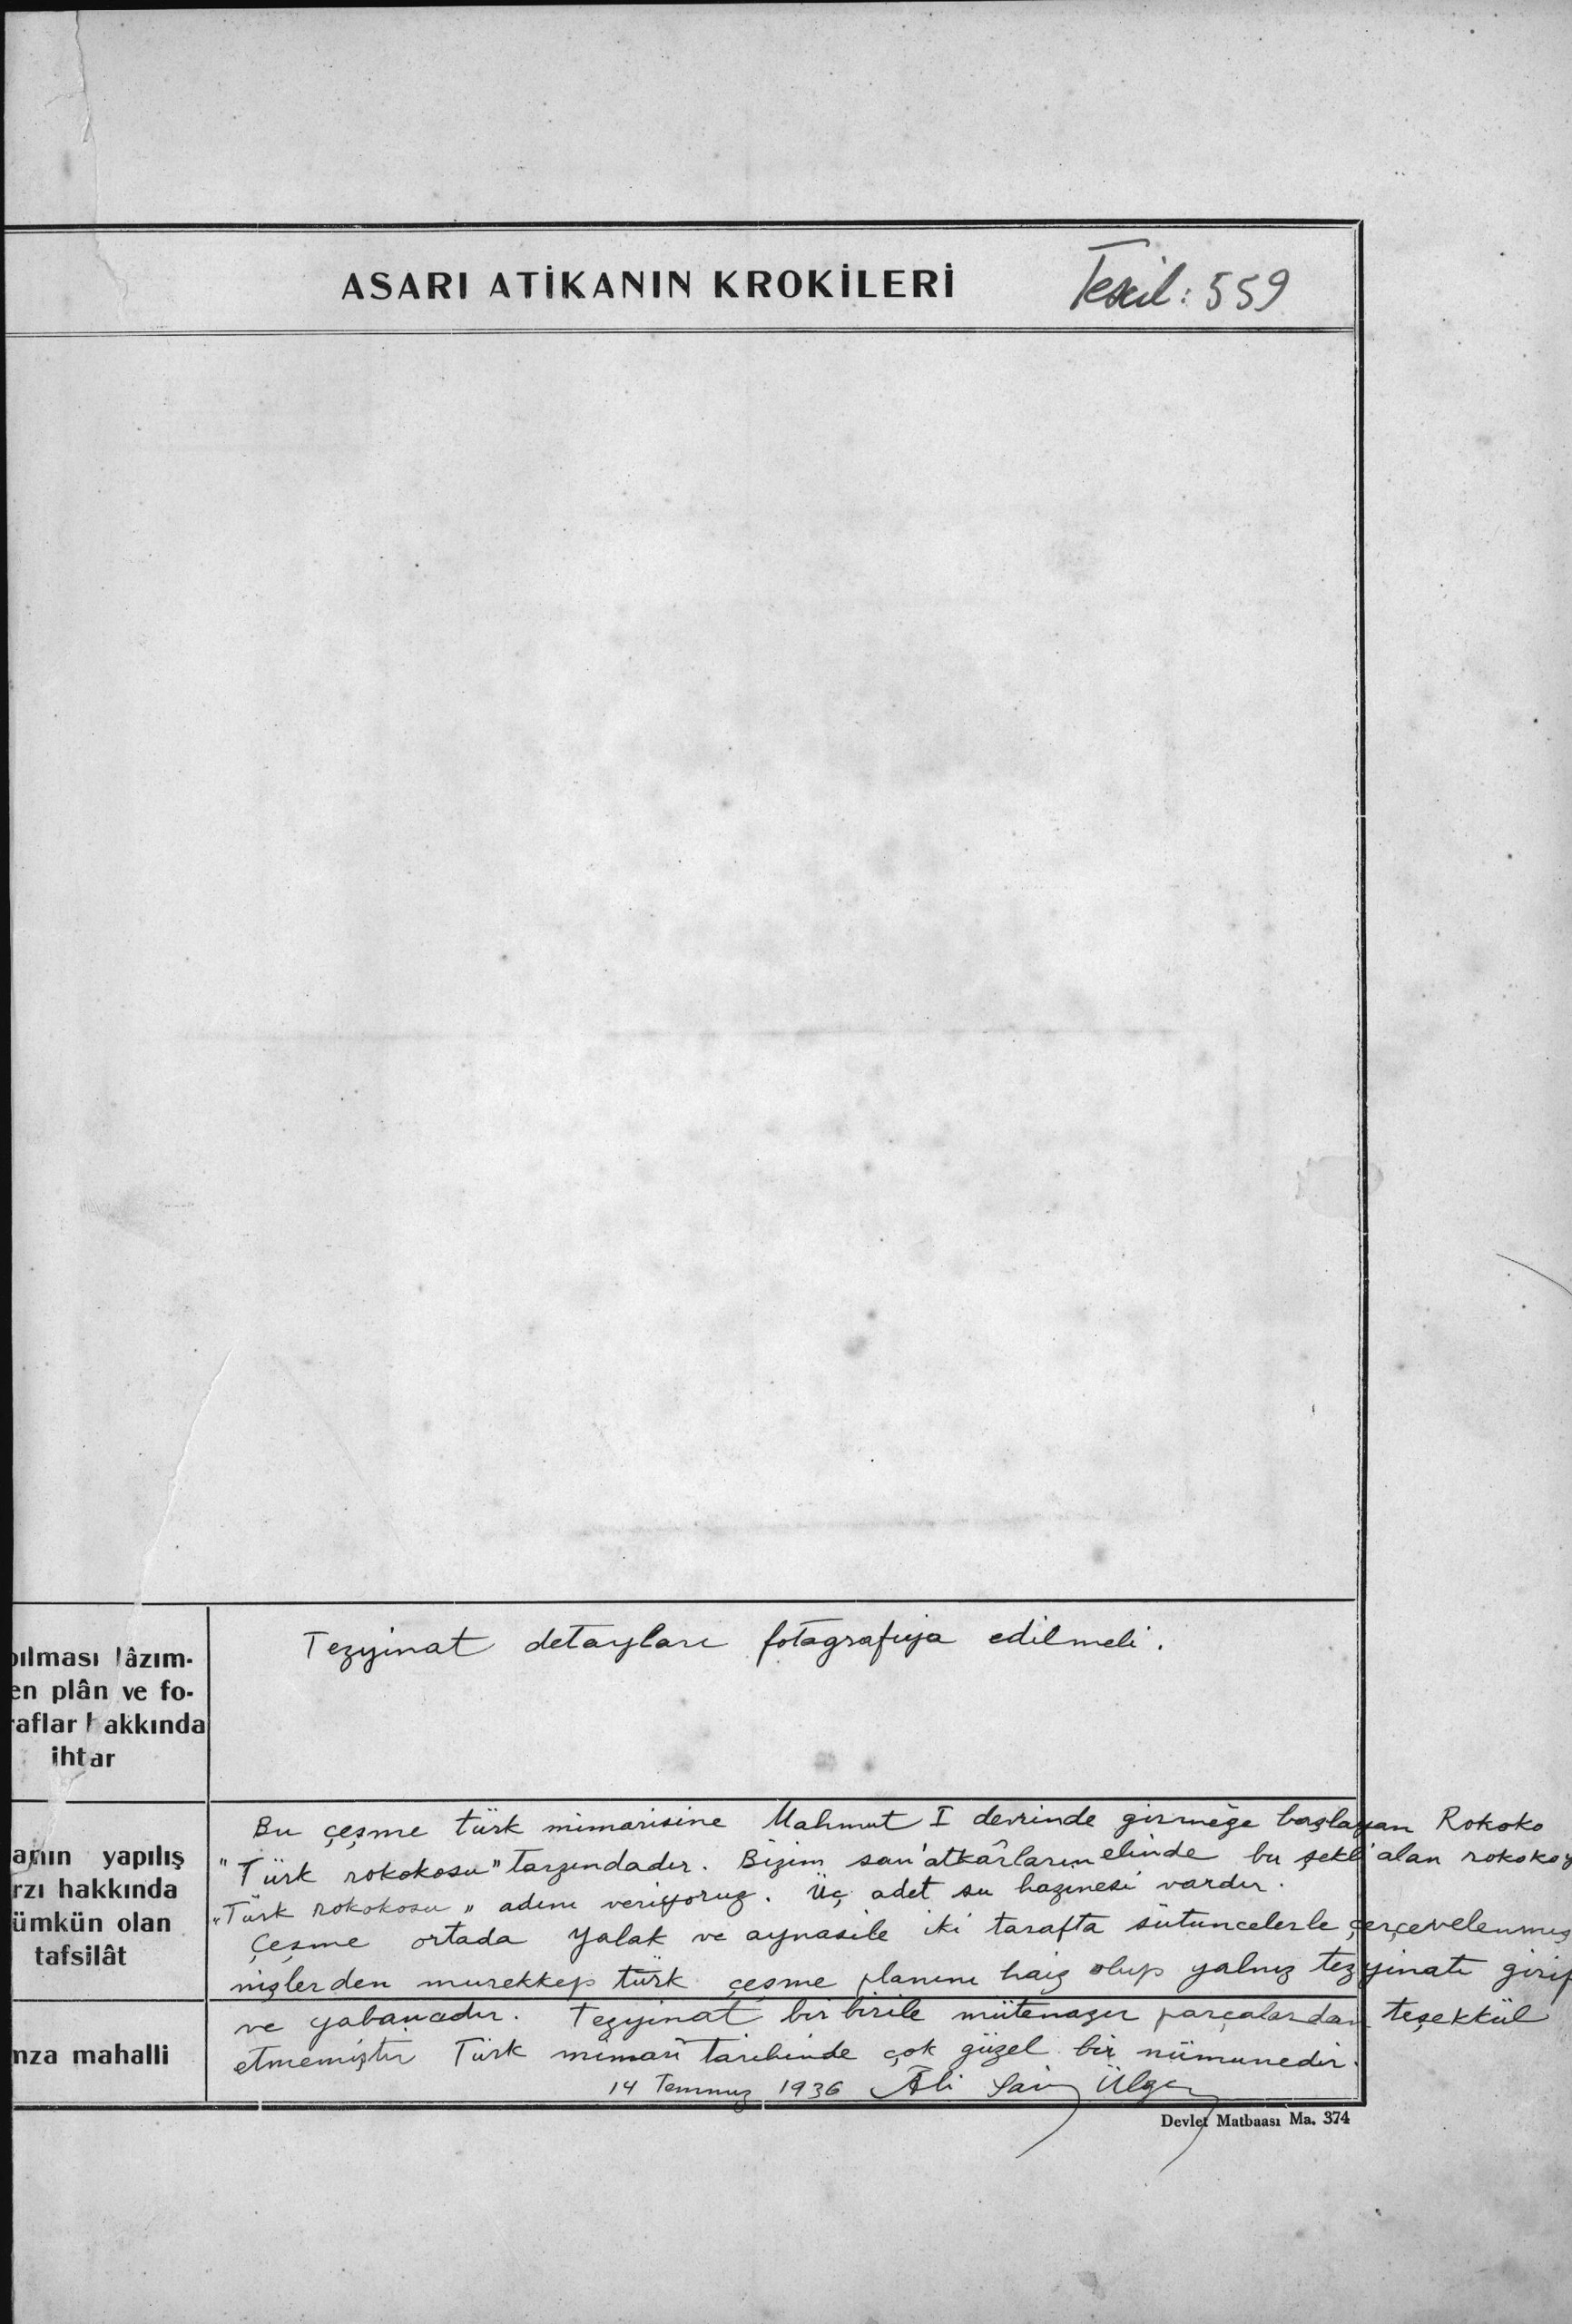 ASARI ATİKANIN KROKİLERİ
Tescil: 559
pılması lâzım-
en plân ve fo-
raflar hakkında
ihtar
Tezyinat detayları fotağrafiya edilmeli.
anın yapılış
rzı hakkında
ümkün olan
tafsilât
Bu çeşme türk mimarisine Mahmut I devrinde girmeğe başlayan Rokoko
"Türk rokokosu" tarzındadır. Bizim san'atkârların elinde bu şekli alan rokokoy
"Türk rokokosu" adını veriyoruz. Üç adet su haznesi vardır.
Çeşme ortada yalak ve aynasile iki tarafta sütuncelerle çerçevelenmiş
nişlerden murekkep türk çeşme planını haiz olup yalnız tezyinatı girif
ve yabancıdır. Tezyinat bir birile mütenazır parçalardan teşekkül
etmemiştir Türk mimarî tarihinde çok güzel bir nümunedir.
mza mahalli
14 Temmuz 1936 Ali Saim Ülgen
Devlet Matbaası Ma. 374